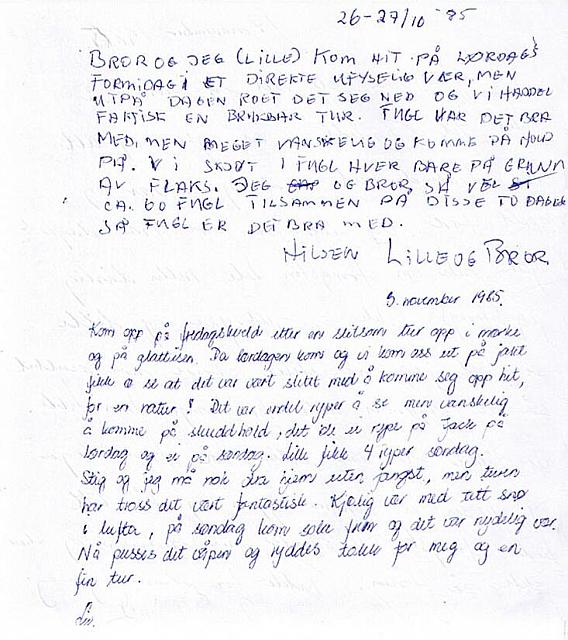 26-27/10 -85
BROR OG JEG (LILLE) KOM HIT PÅ LØRDAGS
FORMIDAG I ET DIREKTE UFYSELIG VÆR, MEN
UTPÅ DAGEN ROET DET SEG NED OG VI HADDE
FAKTISK EN BRUKBAR TUR. FUGL VAR DET BRA
MED, MEN MEGET VANSKELIG OG KOMME PÅ HOLD
PÅ. VI SKJØT 1 FUGL HVER BARE PÅ GRUNN
AV FLAKS. JEG OG BROR, SÅ VEL
CA. 60 FUGL TILSAMMEN PÅ DISSE TO DAGER
SÅ FUGL ER DET BRA MED.
HILSEN LILLE OG BROR
3. november 1985.
Kom opp på fredagskveld etter en slitsom tur opp i mørke
og på glattisen. Da lørdagen kom og vi kom oss ut på jakt
fikk vi se at det var vært slitet med å komme seg opp hit,
for en natur! Det var endel ryper å se men vanskelig
å komme på skuddhold, det ble ei rype på Jack på
lørdag og ei på søndag. Lille fikk 4 ryper søndag.
Stig og jeg må nok dra hjem uten fangst, men turen
har tross det vært fantastisk. Kjølig var med tett snø
i lufta, på søndag kom sola frem og det var nydelig vær.
Nå pusses det våpen og ryddes takk for meg og en
fin tur.
Liv.